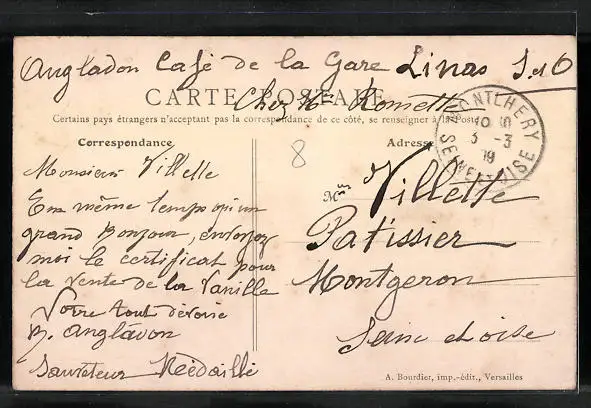 Angladon Café de la Gare Linas S et O
Chez Mr
CARTE POSTALE
Certains pays étrangers n'acceptant pas la correspondance de ce côté, se renseigner à la Poste
Correspondance
Monsieur Villette
En même temps qu'un
grand Bonjour, envoyez
moi le certificat pour
la vente de la Vanille
Votre tout dévoué
Angladon
Sauveteur Médaillé
8
Adresse
MONTLHERY
3 -3
SEINE ET OISE
Mr Villette
Patissier
Montgeron
Seine et oise
A. Bourdier, imp.-édit., Versailles